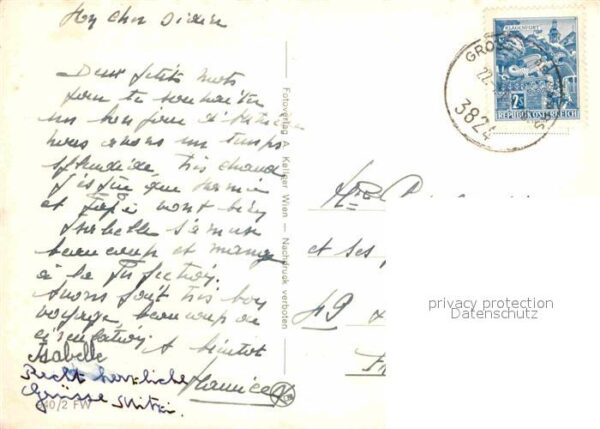 My cher Didier
Deux petits mots
pour te souhaiter
un bonjour d'Autriche
nous avons un temps
splendide, très chaud
J'espère que Mamie
et Papi vont bien
Isabelle s'amuse
beaucoup et mange
à la perfection.
Avons fait très bon
voyage, beaucoup de
circulation.
A bientôt
Isabelle
Recht herzliche
Grüsse Mitzi.
240/2 FW
Fotoverlag A. Kellner Wien — Nachdruck verboten
KLAGENFURT
2S
REPUBLIK ÖSTERREICH
GROSS
22.
3824
et ses
49
privacy protection
Datenschutz